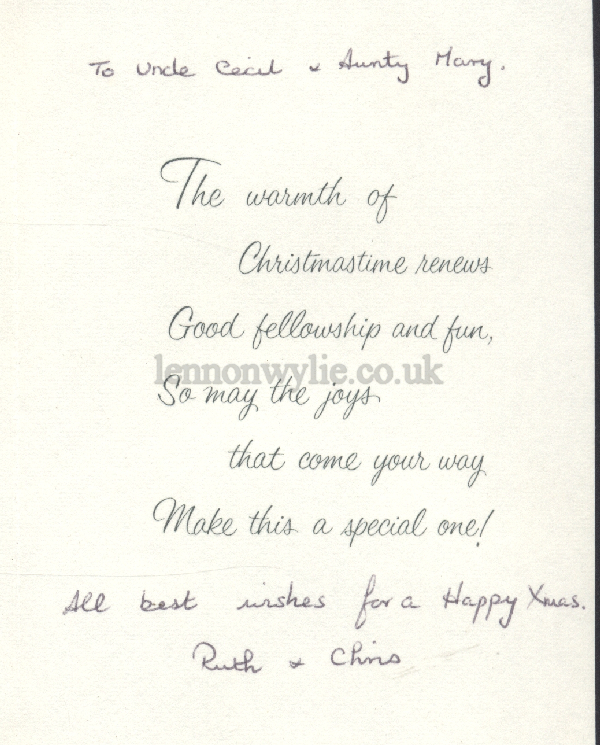 To Uncle Cecil & Aunty Mary.
The warmth of
Christmastime renews
Good fellowship and fun,
lennonwylie.co.uk
So may the joys
that come your way
Make this a special one!
All best wishes for a Happy Xmas.
Ruth & Chris